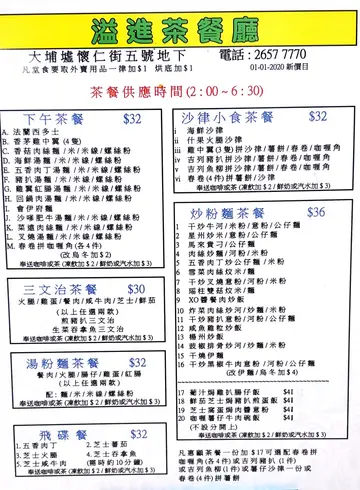 溢進茶餐廳
大埔墟懷仁街五號地下 電話:2657 7770
凡堂食要取外賣用品一律加$1 烘底加$1 01-01-2020 新價目
茶餐供應時間(2:00~6:30)
下午茶餐 $32
A. 法蘭西多士
B. 香茅雞中翼(4隻)
C. 香菇肉絲麵/米/米線/螺絲粉
D. 海鮮湯麵/米/米線/螺絲粉
E. 五香肉丁湯麵/米/米線/螺絲粉
F. 豬扒湯麵/米/米線/螺絲粉
G. 雞翼紅腸湯麵/米/米線/螺絲粉
H. 回鍋肉湯麵/米/米線/螺絲粉
I. 會伊府麵
J. 沙嗲肥牛湯麵/米/米線/螺絲粉
K. 菜遠肉絲麵/米/米線/螺絲粉
L. 叉燒湯麵/米/米線/螺絲粉
M. 春卷拼咖喱角(各4件)
(改烏冬加$2)
奉送咖啡或茶(凍飲加$2/鮮奶或汽水加$3)
三文治茶餐 $30
火腿/雞蛋/餐肉/咸牛肉/芝士/鮮茄
(以上任選兩款)
煎豬扒三文治
生菜吞拿魚三文治
奉送咖啡或茶(凍飲加$2/鮮奶或汽水加$3)
湯粉麵茶餐 $32
餐肉/火腿/腸仔/雞蛋/紅腸
(以上任選兩款)
配:麵/米/米線/螺絲粉
奉送咖啡或茶(凍飲加$2/鮮奶或汽水加$3)
飛碟餐 $32
1.五香肉丁 2.芝士蕃茄
3.芝士火腿 4.芝士吞拿魚
5.芝士咸牛肉 (需時約10分鐘)
奉送咖啡或茶(凍飲加$2/鮮奶或汽水加$3)
沙律小食茶餐 $32
i 海鮮沙律
ii 什果火腿沙律
iii 雞中翼(3隻)拼沙律/薯餅/春卷/咖喱角
iv 吉列豬扒拼沙律/薯餅/春卷/咖喱角
v 吉列魚柳拼沙律/薯餅/春卷/咖喱角
vi 春卷(4件)拼沙律/薯餅
奉送咖啡或茶(凍飲加$2/鮮奶或汽水加$3)
炒粉麵茶餐 $36
1 干炒牛河/米粉/意粉/公仔麵
2 星州炒米/意粉/公仔麵
3 馬來貴刁/公仔麵
4 肉絲炒麵/河粉/米粉
5 五香肉丁炒公仔麵/米粉
6 雪菜肉絲炆米/麵
7 干炒叉燒意粉/河粉/米粉
8 瑤柱雙菇炆米/麵
9 XO醬餐肉炒飯
10 炸菜肉絲炒河/麵/米粉
11 干炒豬扒意粉/河粉/公仔麵
12 咸魚雞粒炒飯
13 楊州炒飯
14 豉椒排骨炒河/麵/米粉
15 干燒伊麵
16 干炒黑椒牛肉意粉/河粉/公仔麵
(改伊麵/烏冬加$4)
17 葡汁焗雞扒腸仔飯 $41
18 鮮茄芝士焗豬扒煎蛋飯 $41
19 芝士窩蛋焗肉醬意粉 $41
20 咖喱薯仔牛肉碗飯 $41
(不設分開上)
奉送咖啡或茶(凍飲加$2/鮮奶或汽水加$3)
凡惠顧茶餐一份加$17可選配春卷拼
咖喱角(各4件)或吉列豬扒(1件)
或吉列魚柳(1件)或薯仔沙律一份或
春卷(4件)拼薯餅或沙律